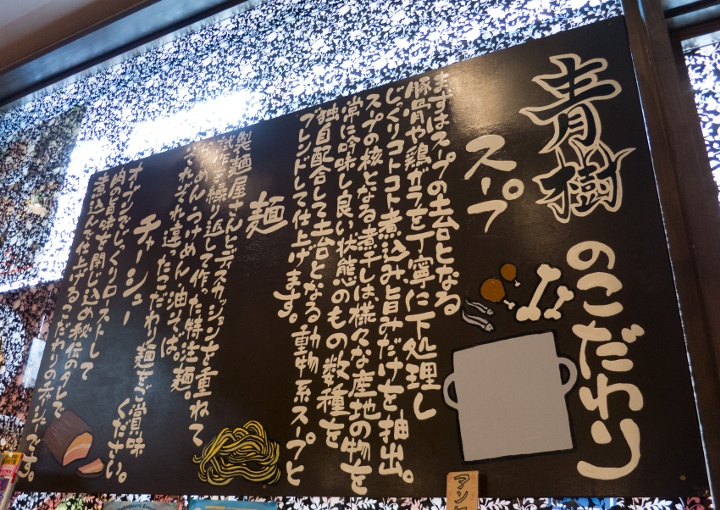 青樹のこだわり
スープ
まずはスープの土台となる
豚骨や鶏ガラを丁寧に下処理し
じっくりコトコト煮込み旨みだけを抽出。
スープの核となる煮干しは様々な産地の物を
常に吟味し良い状態のもの数種を
独自配合して土台となる動物系スープと
ブレンドして仕上げます。
麺
製麺屋さんとディスカッションを重ねて
試作を繰り返して作った特注麺。
らーめん、つけめん、油そば、
それぞれ違ったこだわり麺をご賞味
ください。
チャーシュー
オーブンでじっくりローストして
肉の旨味を閉じ込め秘伝のタレで
煮込んで仕上げるこだわりのチャーシューです。